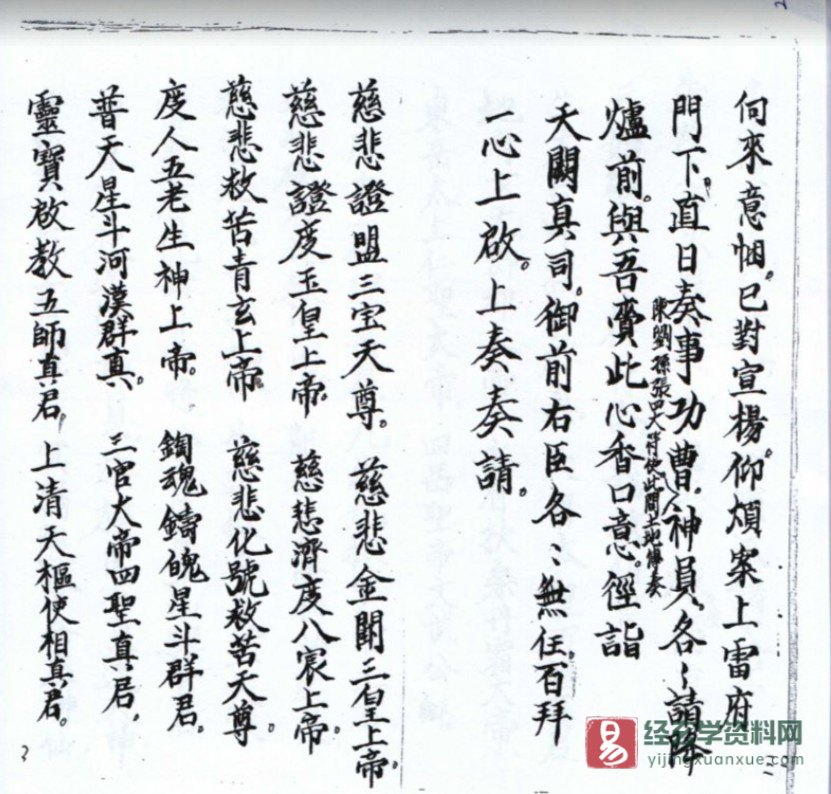 伺來意悃。已對宣楊。仰煩案上雷府
門下。直日奏事功曹。神員。各〻請降
陳劉孫張四大符使此間土地傳奏
爐前。與吾賫此心香口意。徑詣
天闕真司。御前右臣各〻無任百拜
一心上啟。上奏奏請。
慈悲證盟三宝天尊。 慈悲金闕三皇上帝。
慈悲證度玉皇上帝。 慈悲濟度八宸上帝。
慈悲救苦青玄上帝。 慈悲化號救苦天尊。
度人五老生神上帝。 鍧魂鑄魄星斗群君。
普天星斗河漢群真。 三官大帝四聖真君。
靈寶啟教五師真君。上清天樞使相真君。
经玄学资料网
yijingxuanxue.com
易